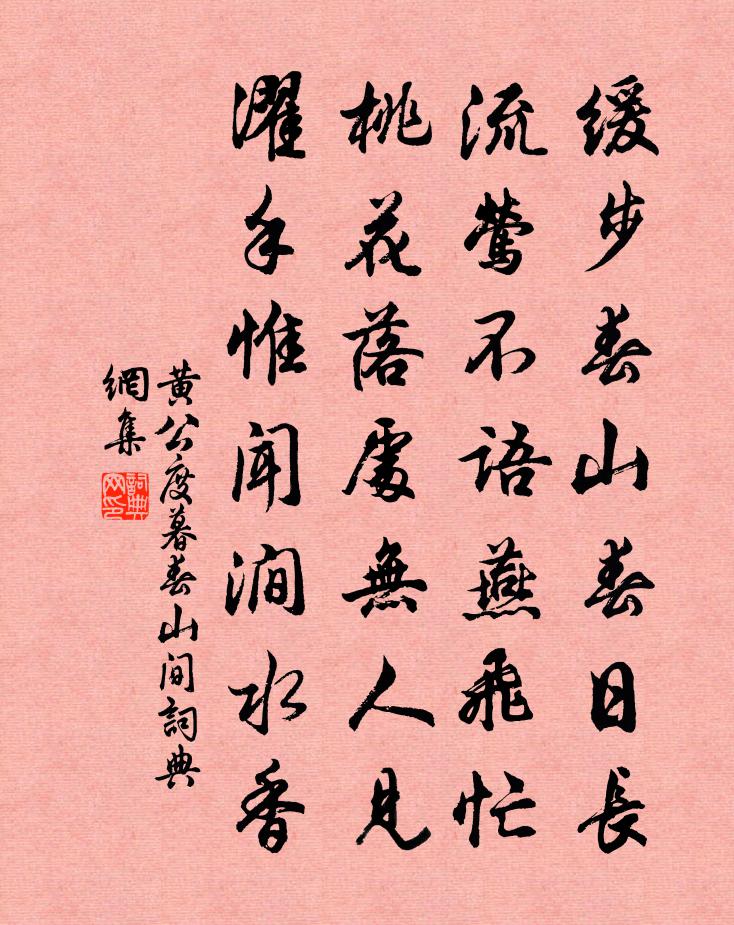 緩步春山春日長
流鶯不語燕飛忙
桃花落處無人見
濯手惟聞澗水香
黄公度暮春山間詞典
網集
詞典
网印